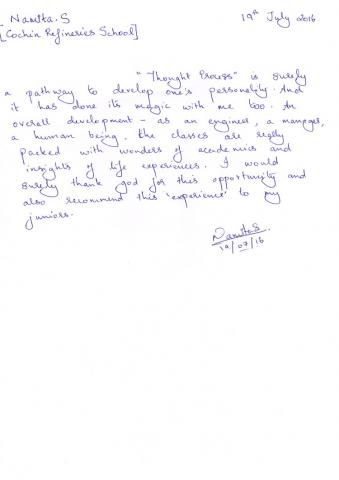 Namita.S
19th July 2016
[Cochin Refineries School]
"Thought Process" is surely
a pathway to develop one's personality. And
it has done its magic with me too. An
overall development - as an engineer, a manager,
a human being, the classes are really
packed with wonders of academics and
insights of life experiences. I would
surely thank god for this opportunity and
also recommend this 'experience' to my
juniors.
Namita S.
19/07/16